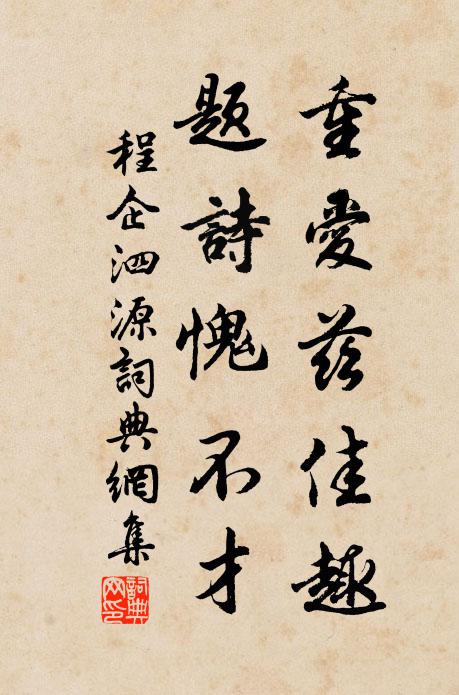 重愛茲佳趣
題詩愧不才
程企泗源詞典網集
詞典網印